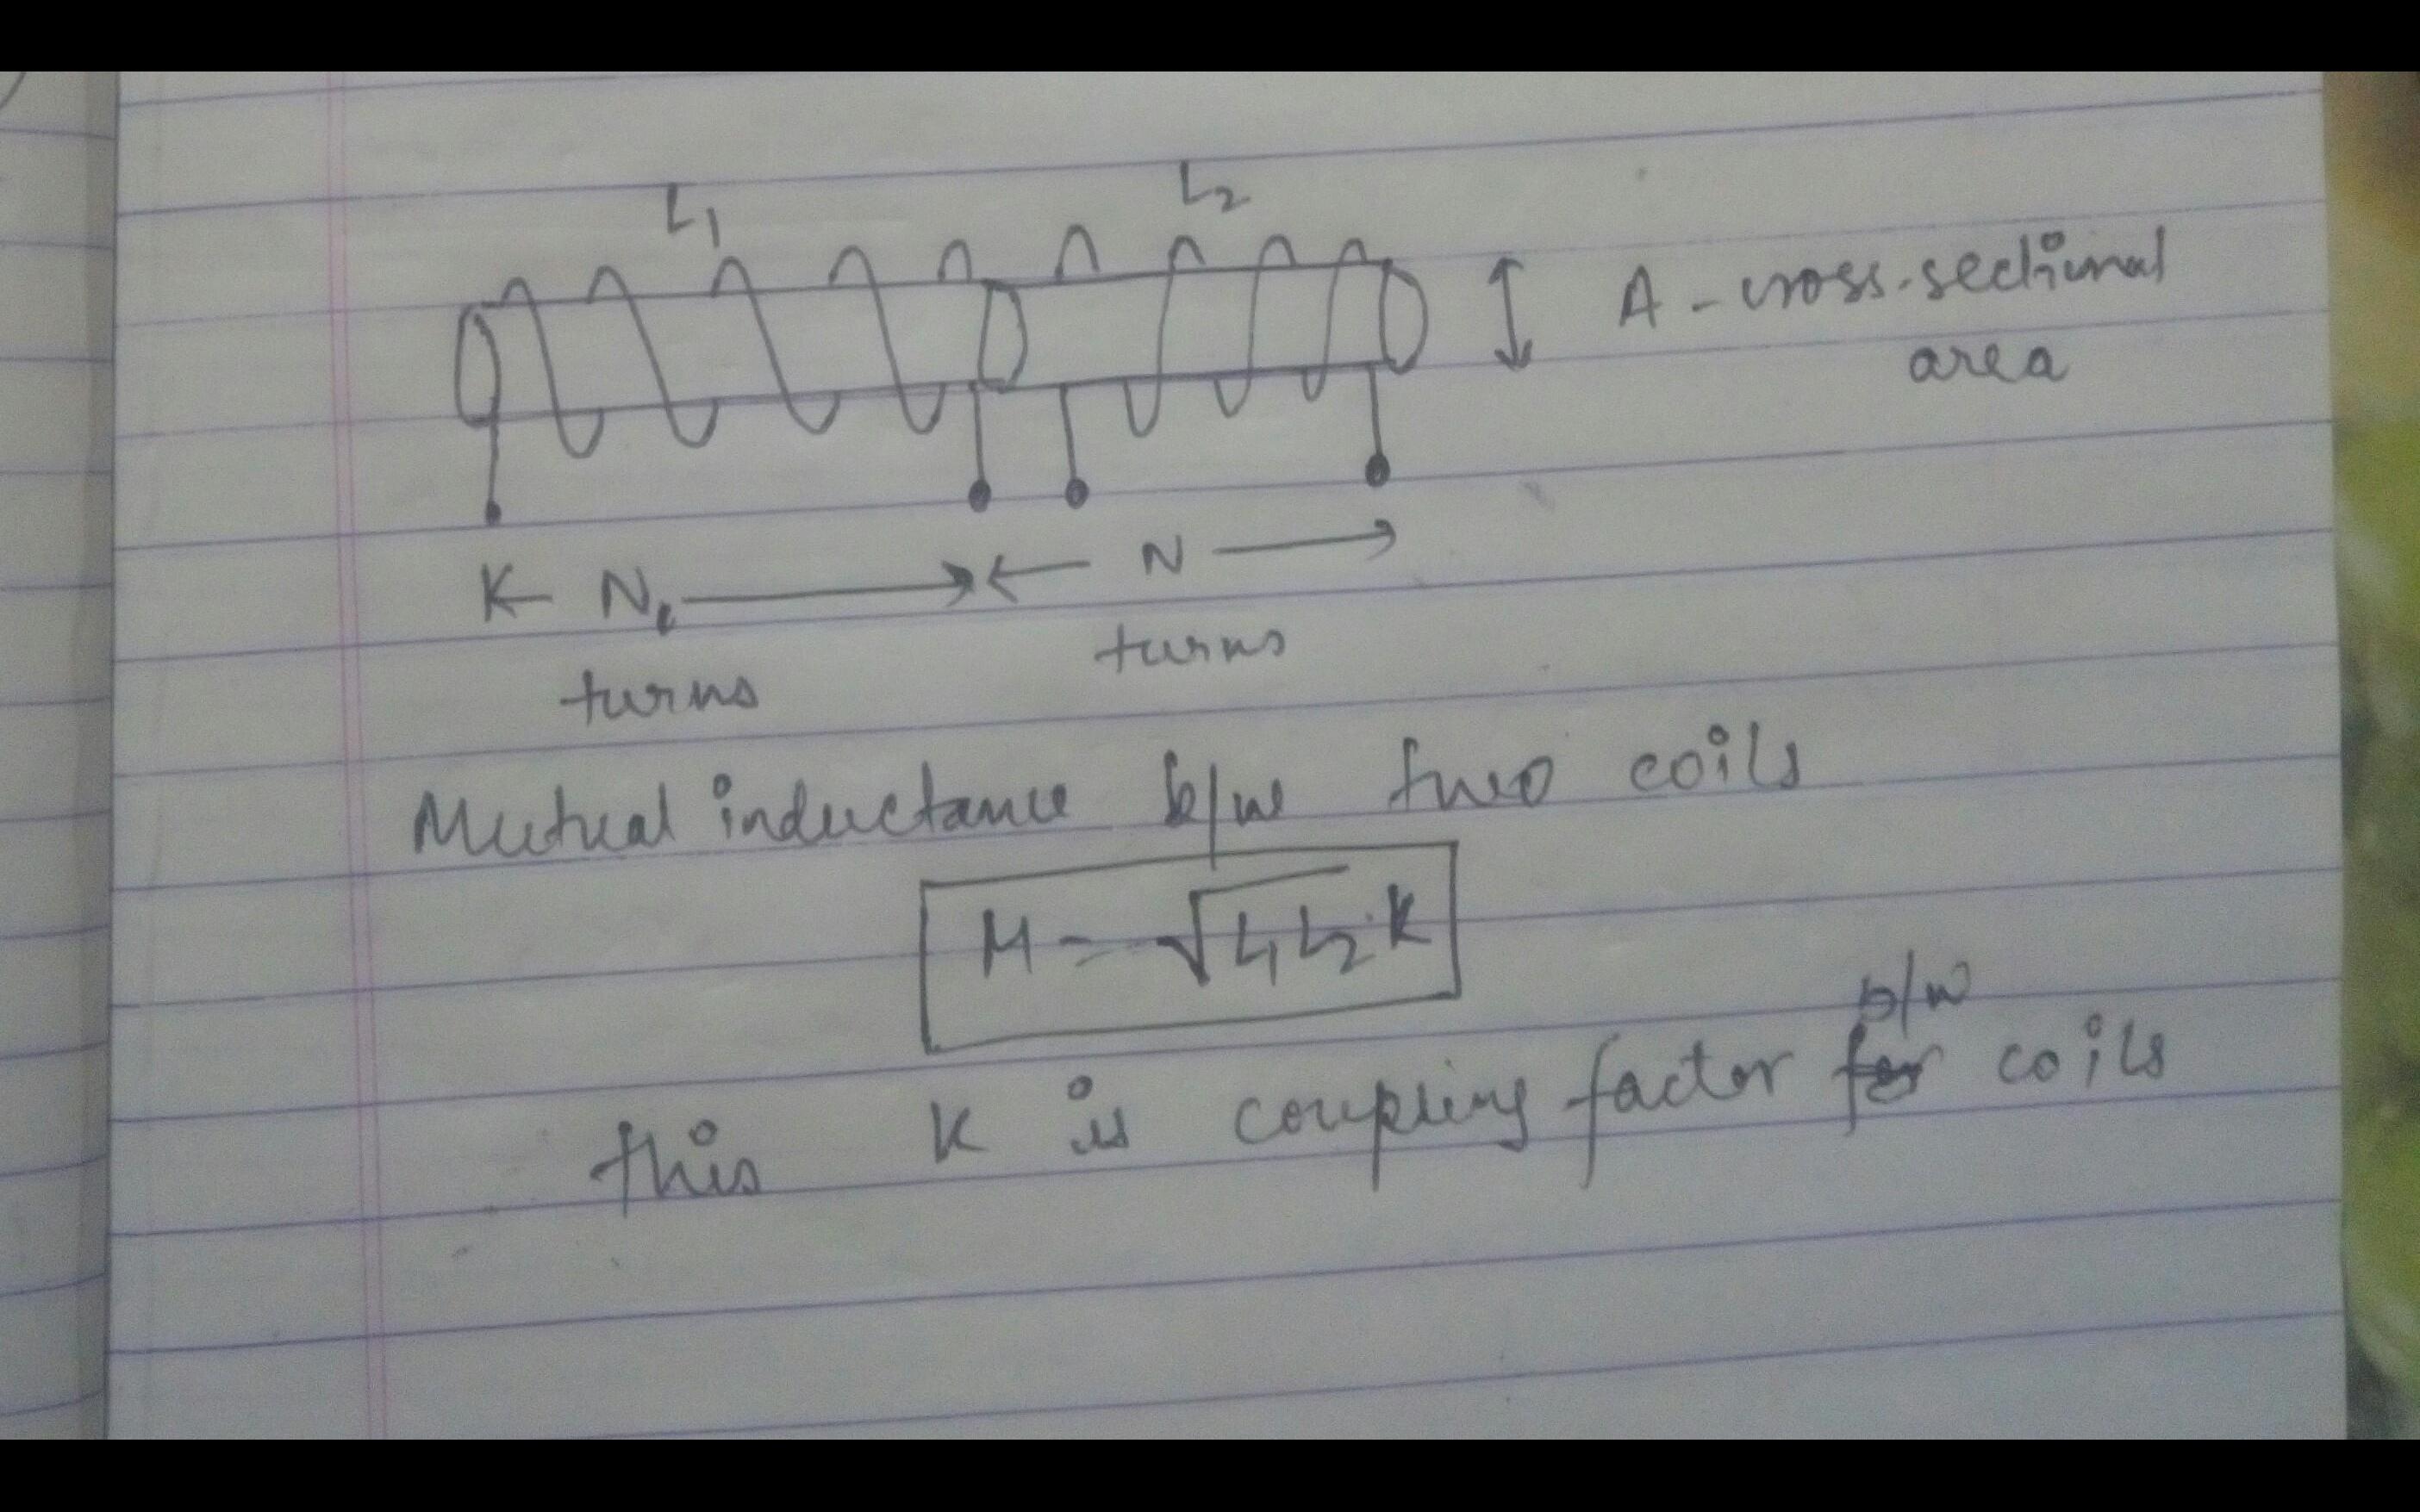 L1 L2
A - cross-sectional
area
K← N1 → ← N →
turns turns
Mutual inductance b/w two coils
M = √L1L2 K
b/w
this K is coupling factor for coils